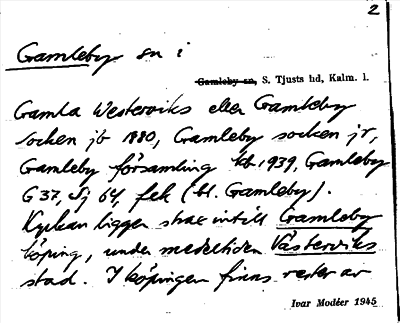 2
Gamleby sn i
Gamleby sn, S. Tjusts hd, Kalm. l.
Gamla Westerviks eller Gamleby
socken jb 1880, Gamleby socken jr,
Gamleby församling kb 1939, Gamleby
G 37, Sj 64, fek (bl. Gamleby).
Kyrkan ligger strax intill Gamleby
köping, under medeltiden Västerviks
stad. I köpingen finns rester av
Ivar Modéer 1945